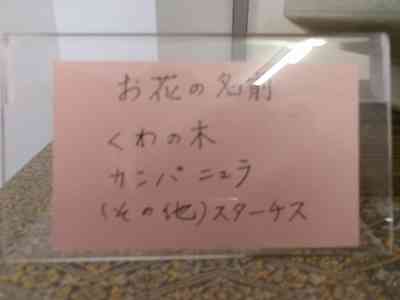 お花の名前
くわの木
カンパニュラ
(その他)スターチス